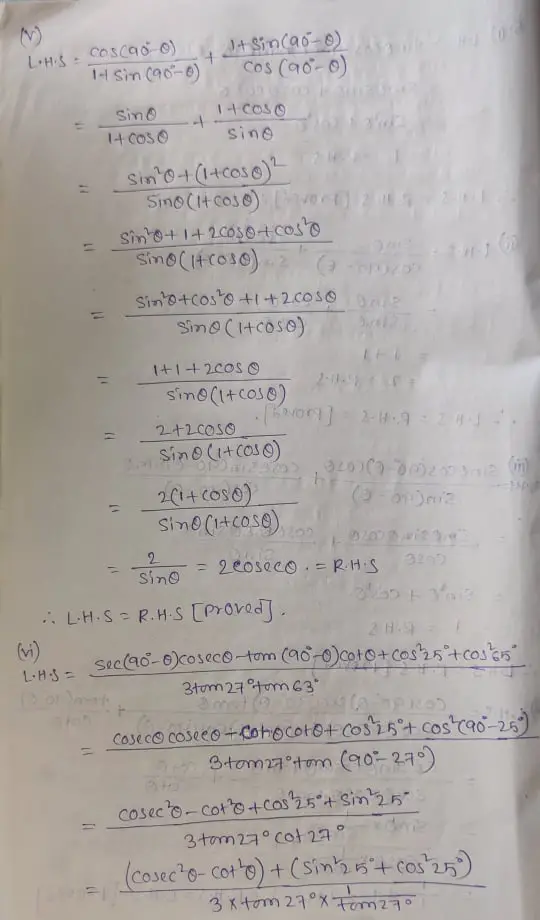 (v)
L.H.S = cos(90°-θ)/1+sin(90°-θ) + 1+sin(90°-θ)/cos(90°-θ)
= sinθ/1+cosθ + 1+cosθ/sinθ
= sin²θ+(1+cosθ)²/sinθ(1+cosθ)
= sin²θ+1+2cosθ+cos²θ/sinθ(1+cosθ)
= sin²θ+cos²θ+1+2cosθ/sinθ(1+cosθ)
= 1+1+2cosθ/sinθ(1+cosθ)
= 2+2cosθ/sinθ(1+cosθ)
= 2(1+cosθ)/sinθ(1+cosθ)
= 2/sinθ = 2cosecθ. = R.H.S
∴ L.H.S = R.H.S [proved].
(vi)
L.H.S = sec(90°-θ)cosecθ-tan(90°-θ)cotθ+cos²25°+cos²65°/3tan27°tan63°
= cosecθcosecθ-cotθcotθ+cos²25°+cos²(90°-25°)/3tan27°tan(90°-27°)
= cosec²θ-cot²θ+cos²25°+sin²25°/3tan27°cot27°
= (cosec²θ-cot²θ)+(sin²25°+cos²25°)/3×tan27°×1/tan27°